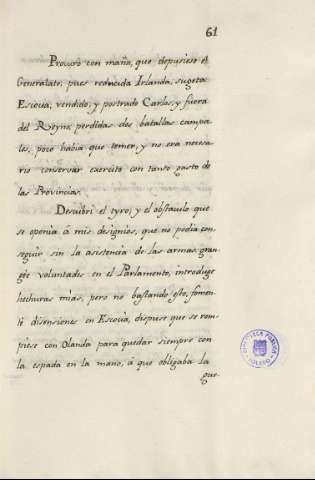 61
Procuró con maña, que depusiese el
Generalato, pues reducida Irlanda, sugeta
Escocia, vendido, y postrado Carlos, y fuera
del Reyno, perdidas dos batallas campa
les, poco habia que temer, y no era necesa
rio conservar exercito con tanto gasto de
las Provincias.
Descubrí el tyro, y el obstaculo que
se oponia á mis designios, que no podia con
seguir sin la asistencia de las armas, gran
geé voluntades en el Parlamento, introduge
hechuras mias, pero no bastando esto, fomen
té disensiones en Escocia, dispuse que se rom
piese con Olanda para quedar siempre con
la espada en la mano, á que obligaba la
gue-
BIBLIOTECA PUBLICA
TOLEDO